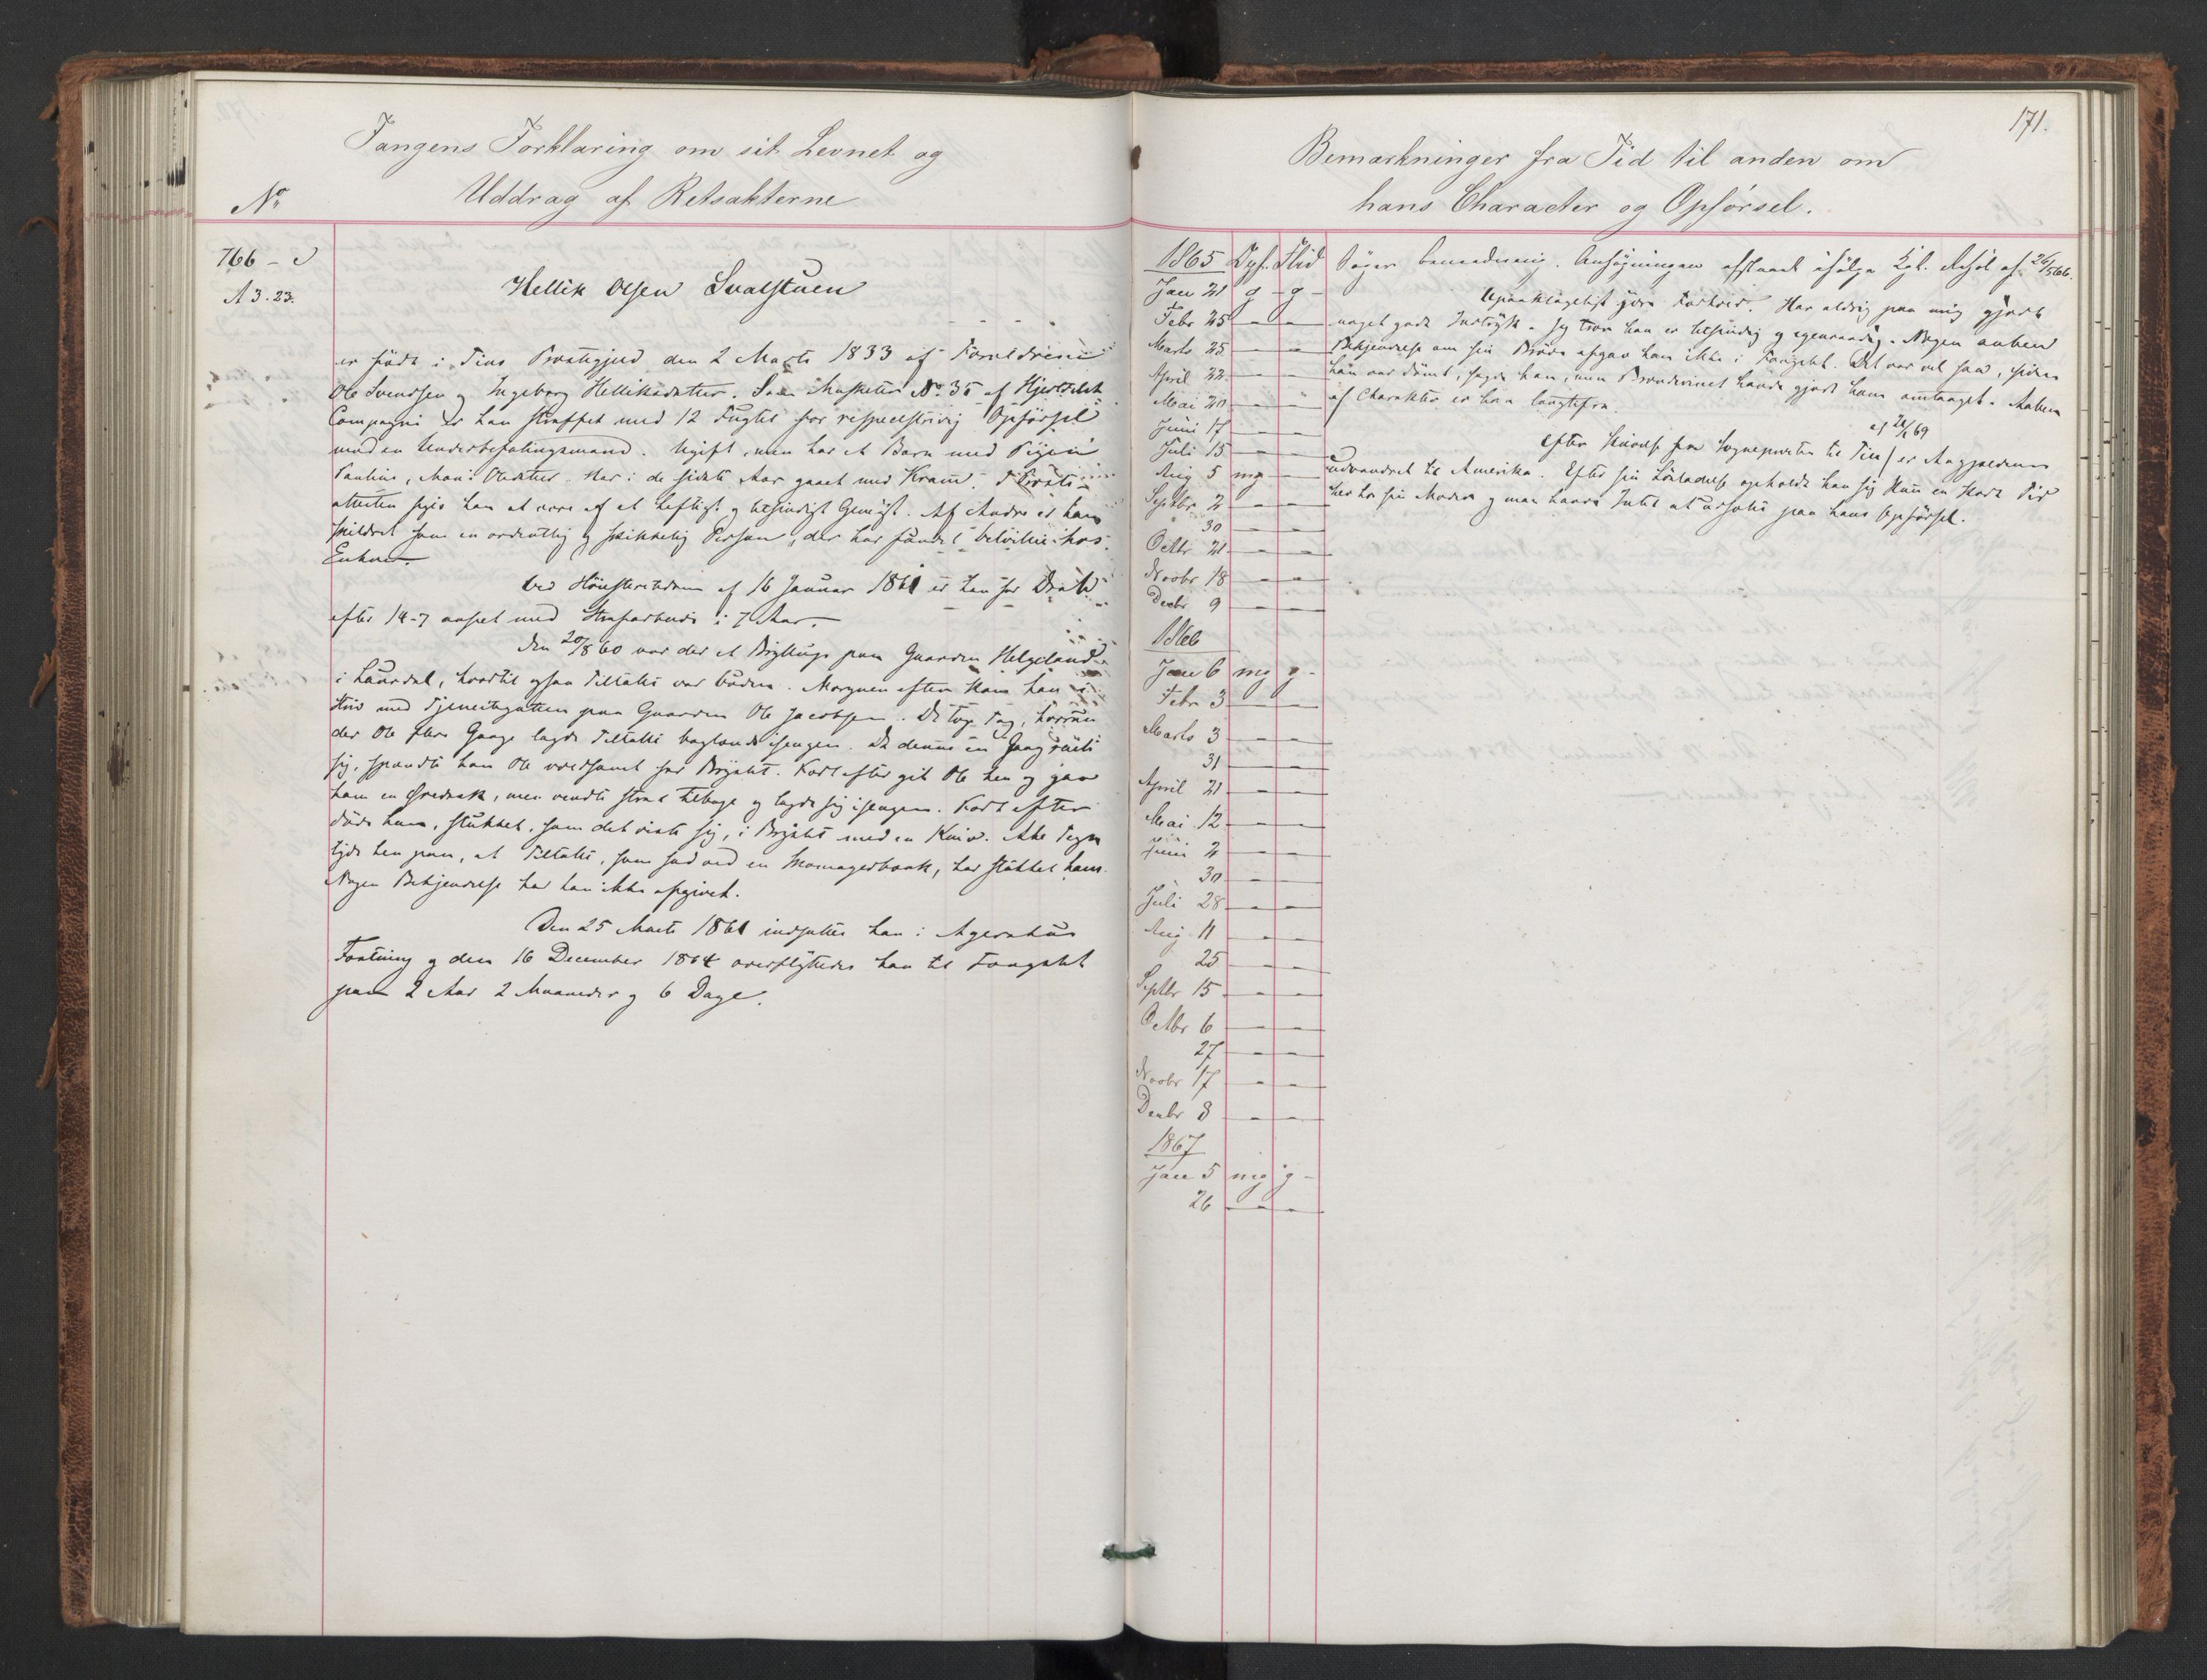 Fangens Forklaring om sit Levnet og
Uddrag af Retsakterne
No
766 -
A 3. 23.
Hellik Olsen Svalstuen
er född i Tins Præstegjeld den 2 Marts 1833 af Forældrene
Ole Svendsen og Ingeborg Helliksdatter. Som Musketer No 35 af Hjertdahl
Compagni er han straffet med 12 Fugtel for respectstridig Opførsel
mod en Underbefalingsmand. Ugift, men har et Barn med Pigen
Olsdatter. Har i de sidste Aar gaaet med Kram. I Præste-
attesten siges han at være af et heftigt og besindigt Gemyt. Af Andre er han
skildret som en ordentlig og skikkelig Person, der har fundet Velvillie hos
Enhver.
Ved Høiesteretsdom af 16 Januar 1861 er han for Drab
efter 14-7 anseet med Strafarbeide i 7 Aar.
Den 20/8 60 var der et Bryllup paa Gaarden Helgeland
i Laurdal, hvortil ogsaa Tiltalte var buden. Morgenen efter kom han i
Kiv med Tjenestegutten paa Gaarden Ole Jacobsen. De tog Tag, hvorunder
der Ole flere Gange lagde Tiltalte baglænds i Sengen. Da denne en Gang reiste
sig, spændte han Ole voldsomt for Brystet. Kort efter gik Ole hen og gav
ham en Øredask, men vendte strax tilbage og lagde sig i Sengen. Kort efter
døde han, stukket, som det viste sig, i Brystet med en Kniv. Alle Tegn
tyde hen paa, at Tiltalte, som sad ved en Skomagerbænk, har stukket ham.
Nogen Bekjendelse har han ikke afgivet.
Den 25 Marts 1861 indsattes han i Agershus
Fæstning og den 16 December 1864 overflyttedes han til Fængslet
paa 2 Aar 2 Maaneder og 6 Dage.
171.
Bemærkninger fra Tid til anden om
hans Character og Opførsel.
1865 Opf. Flid
Jan 21 g - g -
Febr 25 - -
Marts 25 - -
April 22 - -
Mai 20 - -
Juni 17 - -
Juli 15 - -
Aug 5 mg -
Septbr 2 - -
30 - -
Octbr 21 - -
Novbr 18 - -
Decbr 9 - -
1866
Jan 6 mg g -
Febr 3 - -
Marts 3 - -
31 - -
April 21 - -
Mai 12 - -
Juni 2 - -
30 - -
Juli 28 - -
Aug 11 - -
25 - -
Septbr 15 - -
Octbr 6 - -
27 - -
Novbr 17 - -
Decbr 8 - -
1867
Jan 5 mg g -
26 - -
Søger Benaadning. Ansøgningen afslaaet ifølge Kgl. Resol. af 26/5 66.
Upaaklageligt Forhold. Har aldrig paa mig gjort
noget godt Indtryk. Jeg tror han er besindig og egenraadig. Nogen aaben
Bekjendelse om sin Brøde afgav han ikke i Fængslet. Det var vel saa, siden
han var dömt, sagde han, men Brændevinet havde gjort ham omtaaget. Aaben
af Charakter er han langtfra.
Efter Skrivelse fra Sognepresten til Tin af 26/1 69 er Angjeldende
udvandret til Amerika. Efter sin Løsladelse opholdt han sig kun en kort Tid
her hos sin Moder og man havde Intet at udsætte paa hans Opførsel.